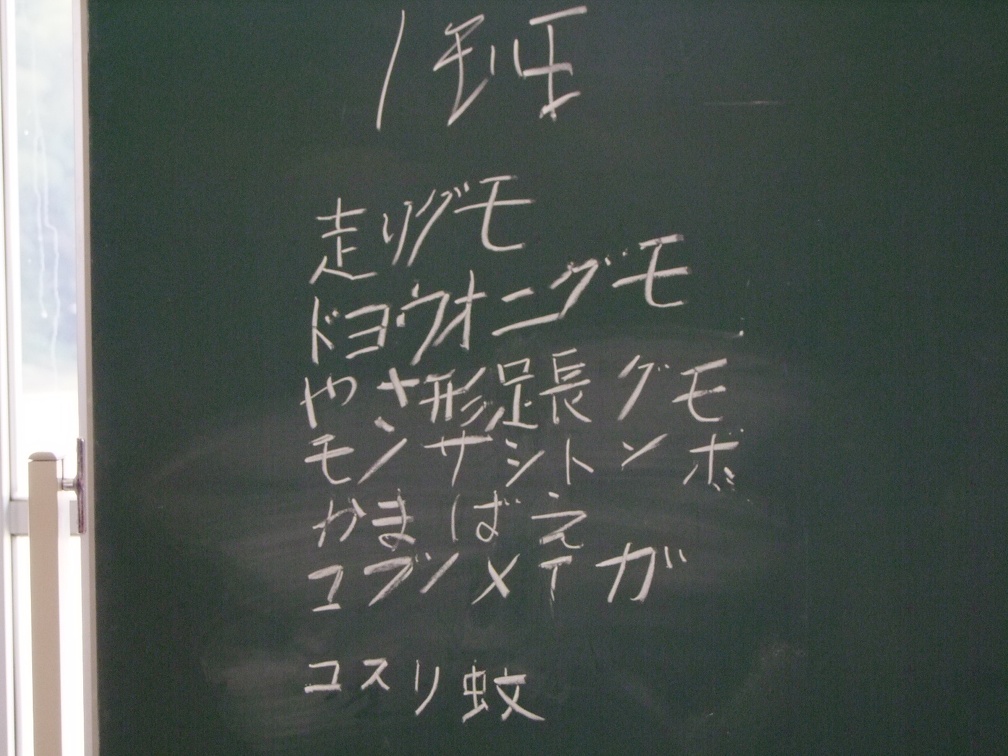 走りグモ
ドヨウオニグモ
やさ形足長グモ
モノサシトンボ
かまばえ
コブノメイガ
ユスリ蚊